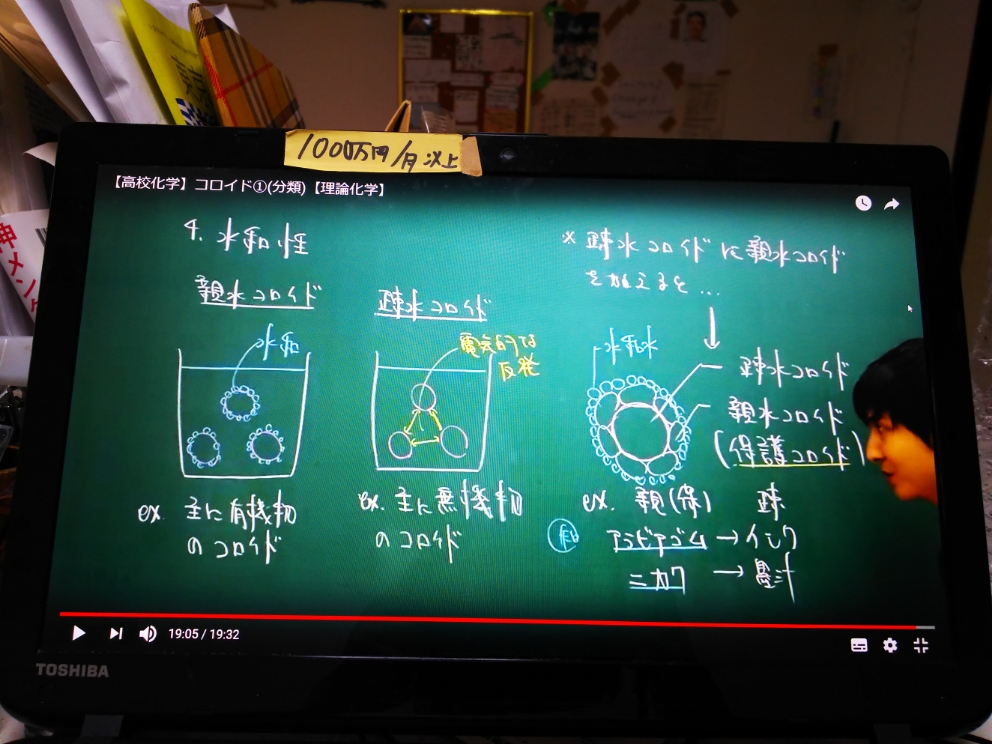 1000万円/月以上
【高校化学】コロイド①(分類)【理論化学】
4. 水和性
親水コロイド
水和
ex. 主に有機物
のコロイド
疎水コロイド
電気的な
反発
ex. 主に無機物
のコロイド
※ 疎水コロイドに親水コロイド
を加えると…
水和水
疎水コロイド
親水コロイド
(保護コロイド)
ex. 親(保) 疎
アラビアゴム → インク
ニカワ → 墨汁
19:05 / 19:32
TOSHIBA
神
メン